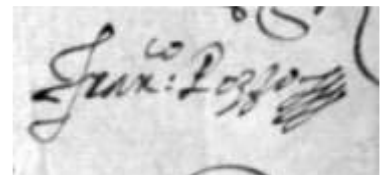 Fran.co: Pozzo